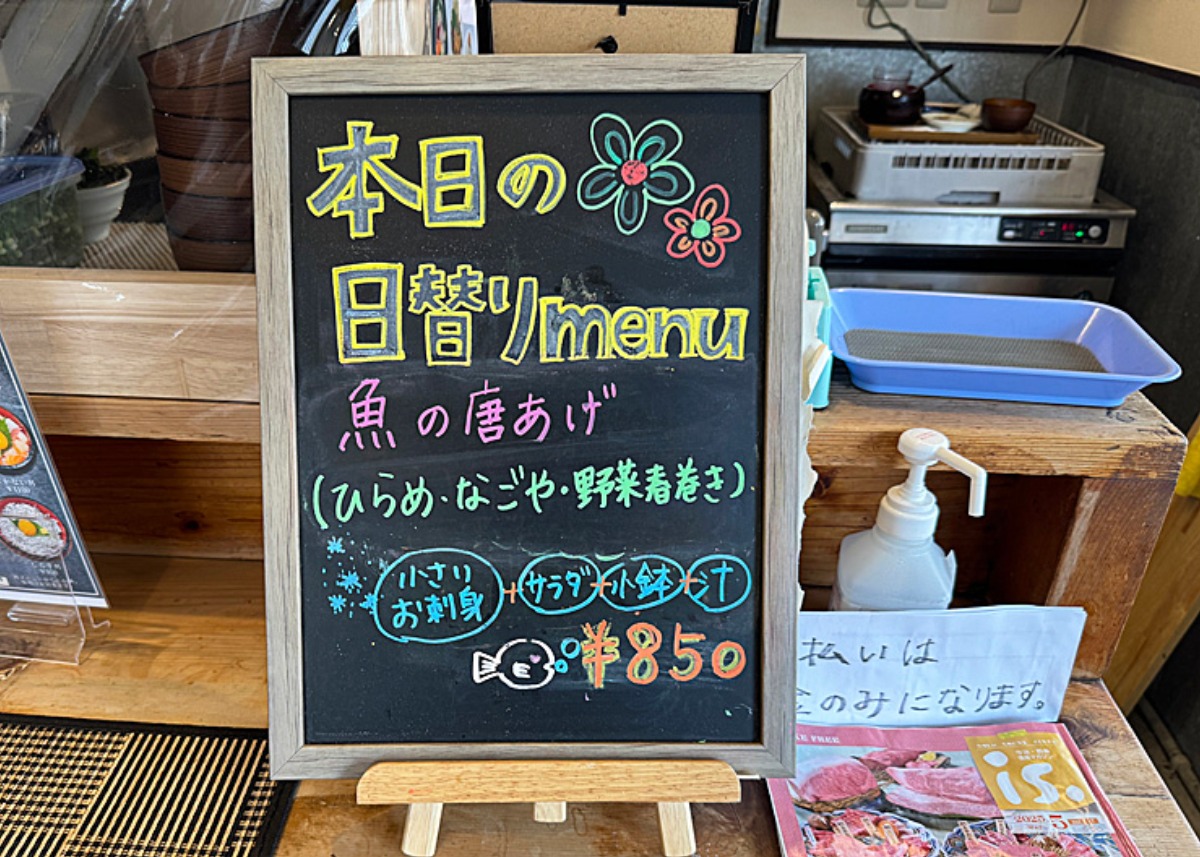 本日の
日替りmenu
魚の唐あげ
(ひらめ・なごや・野菜春巻き)
小さい
お刺身
+サラダ+小鉢+汁
¥850
払いは
のみになります。
FREE
is.
2025 5